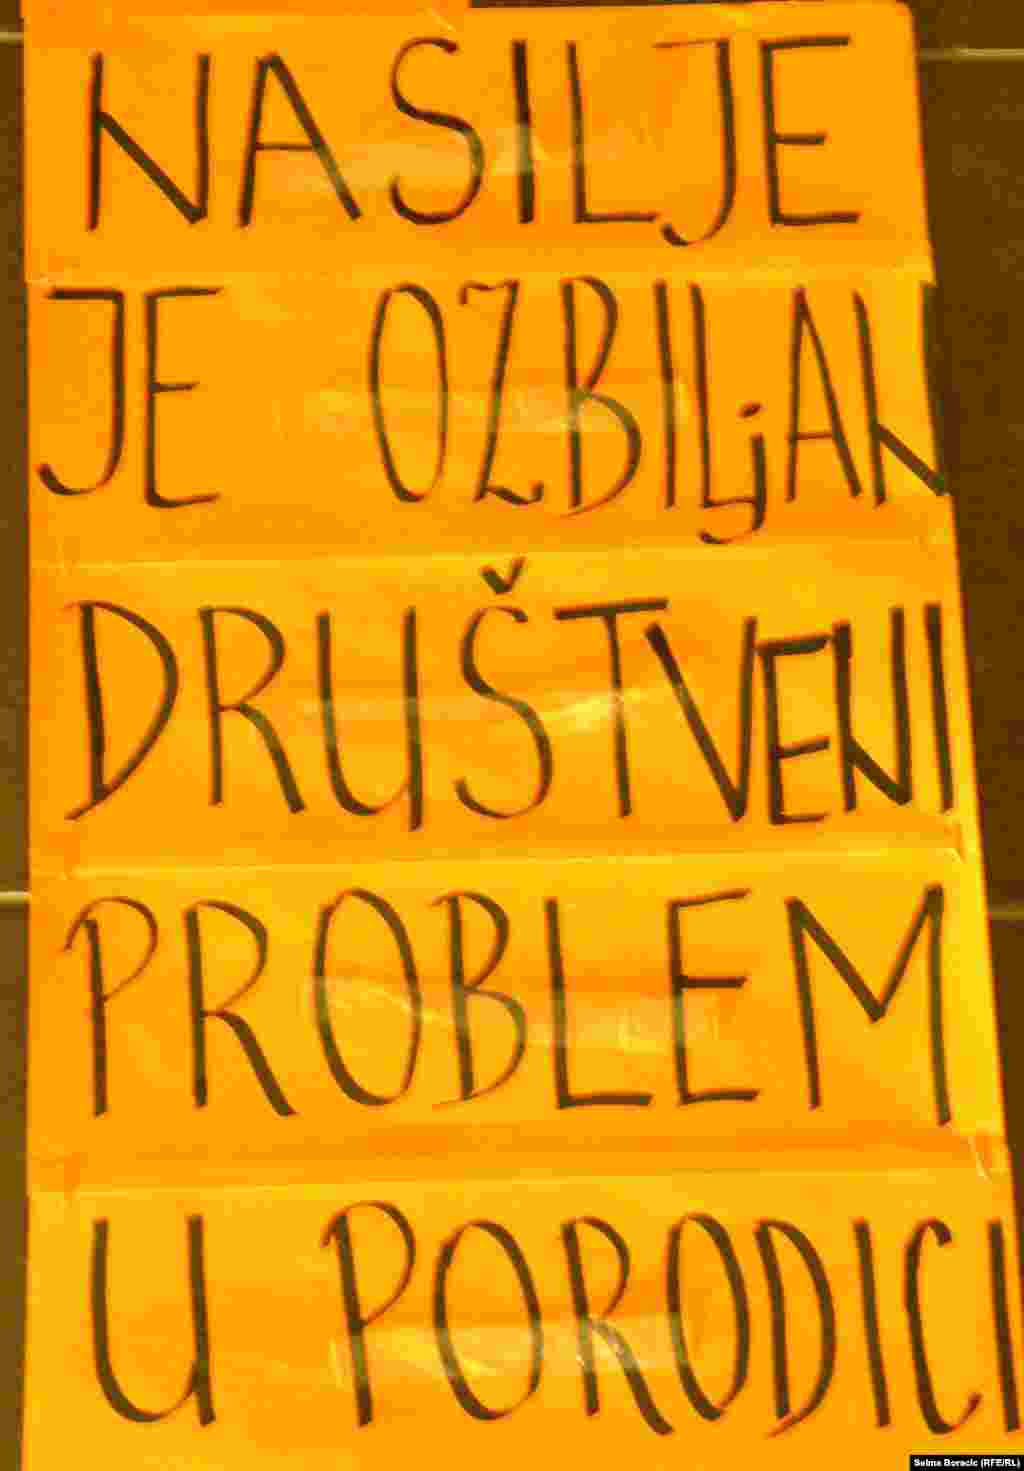 NASILJE
JE OZBILjAN
DRUŠTVENI
PROBLEM
U PORODICI
Selma Boracic (RFE/RL)